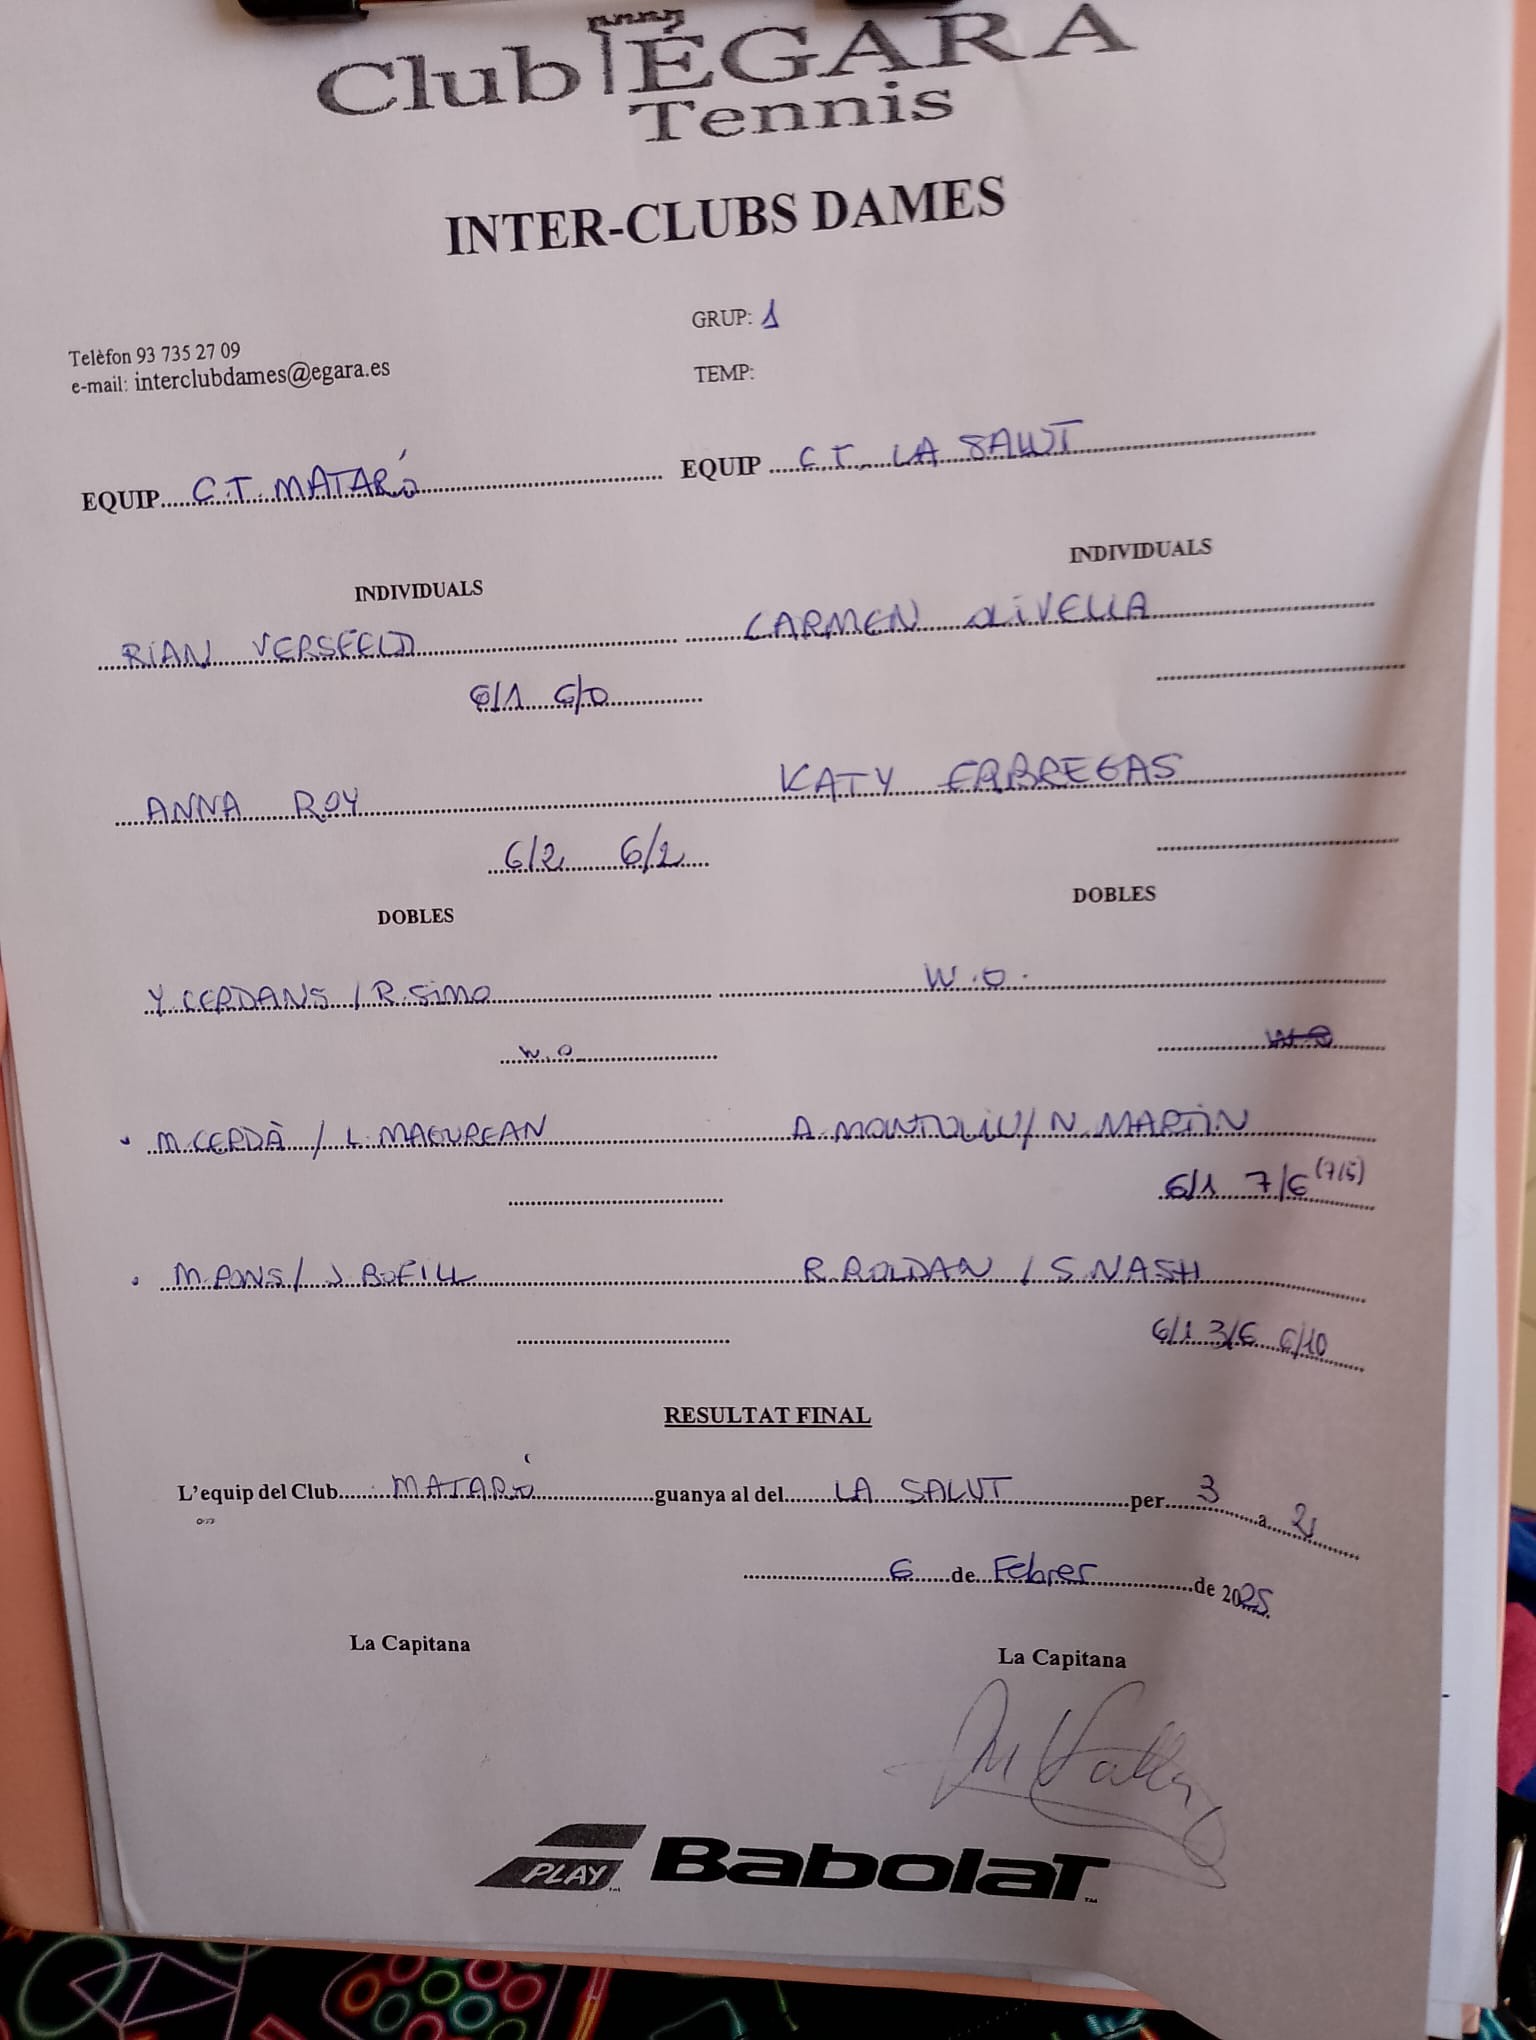 Club EGARA
Tennis
INTER-CLUBS DAMES
GRUP: 1
Telèfon 93 735 27 09
e-mail: interclubdames@egara.es
TEMP:
EQUIP C.T. MATARÓ EQUIP C.T. LA SALUT
INDIVIDUALS INDIVIDUALS
RIAN VERSFELD CARMEN OLIVELLA
6/1 6/0
ANNA ROY KATY FABREGAS
6/2 6/2
DOBLES DOBLES
Y. CERDANS / R. SIMO W.O.
W.O. W.O
M. CERDÀ / L. MAGUREAN A. MONTOLIU / N. MARTIN
6/1 7/6 (7/5)
M. PONS / J. BOFILL R. ROLDAN / S. NASH
6/1 3/6 6/10
RESULTAT FINAL
L'equip del Club MATARÓ guanya al del LA SALUT per 3 a 2
6 de Febrer de 2025
La Capitana La Capitana
PLAY BabolaT